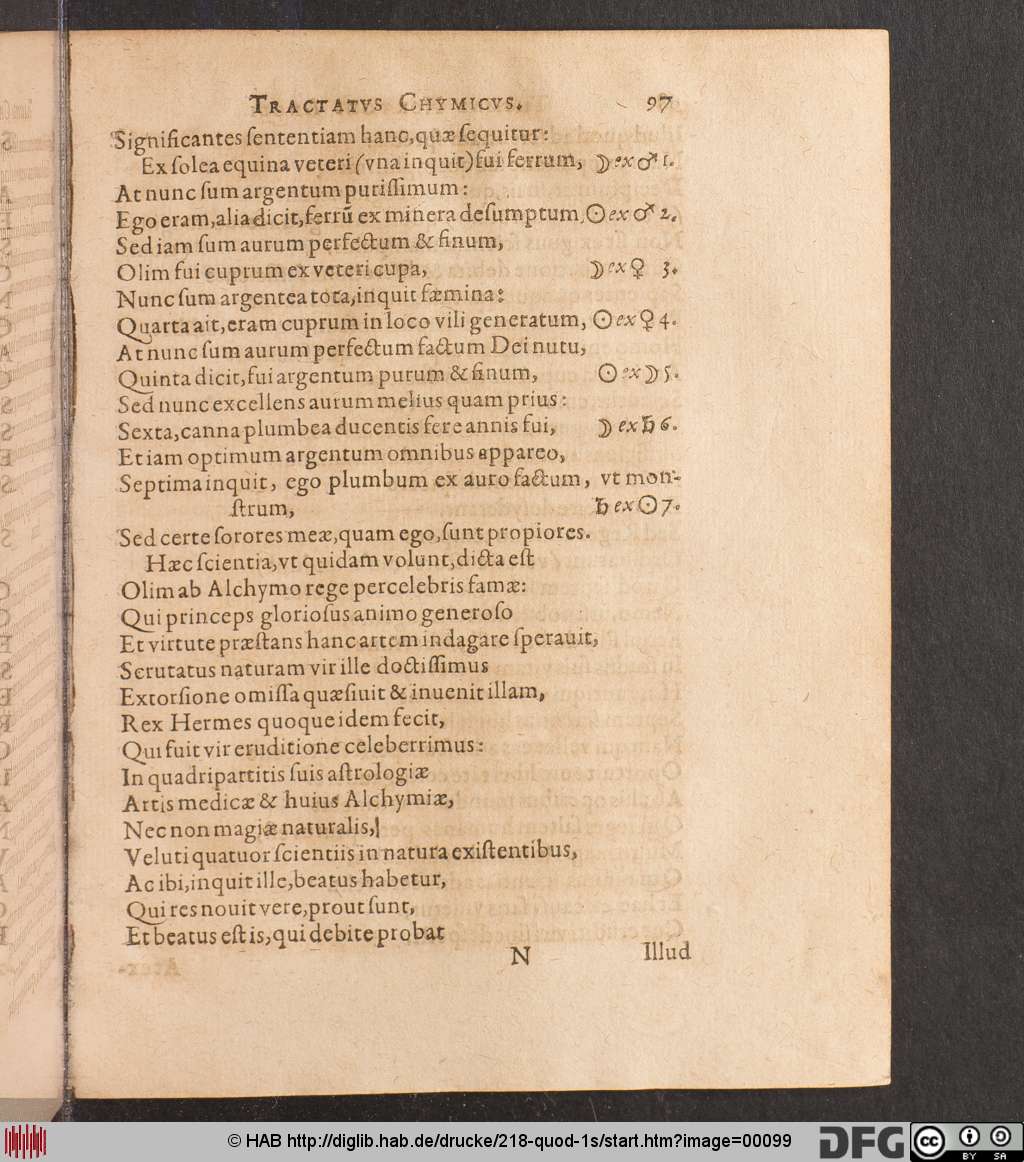 TRACTATVS CHYMICVS. 97
Significantes ſententiam hanc, quæ ſequitur:
Ex ſolea equina veteri (vna inquit) fui ferrum, ☽ ex ♂ 1.
At nunc ſum argentum puriſſimum:
Ego eram, alia dicit, ferrū ex minera deſumptum, ☉ ex ♂ 2.
Sed iam ſum aurum perfectum & finum,
Olim fui cuprum ex veteri cupa, ☽ ex ♀ 3.
Nunc ſum argentea tota, inquit fæmina:
Quarta ait, eram cuprum in loco vili generatum, ☉ ex ♀ 4.
At nunc ſum aurum perfectum factum Dei nutu,
Quinta dicit, fui argentum purum & finum, ☉ ex ☽ 5.
Sed nunc excellens aurum melius quam prius:
Sexta, canna plumbea ducentis fere annis fui, ☽ ex ♄ 6.
Et iam optimum argentum omnibus appareo,
Septima inquit, ego plumbum ex auro factum, vt mon-
ſtrum, ♄ ex ☉ 7.
Sed certe ſorores meæ, quam ego, ſunt propiores.
Hæc ſcientia, vt quidam volunt, dicta eſt
Olim ab Alchymo rege percelebris famæ:
Qui princeps glorioſus animo generoſo
Et virtute præſtans hanc artem indagare ſperauit,
Scrutatus naturam vir ille doctiſſimus
Extorſione omiſſa quæſiuit & inuenit illam,
Rex Hermes quoque idem fecit,
Qui fuit vir eruditione celeberrimus:
In quadripartitis ſuis aſtrologiæ
Artis medicæ & huius Alchymiæ,
Nec non magiæ naturalis,
Veluti quatuor ſcientiis in natura exiſtentibus,
Ac ibi, inquit ille, beatus habetur,
Qui res nouit vere, prout ſunt,
Et beatus eſt is, qui debite probat
N Illud
© HAB http://diglib.hab.de/drucke/218-quod-1s/start.htm?image=00099 DFG cc BY SA